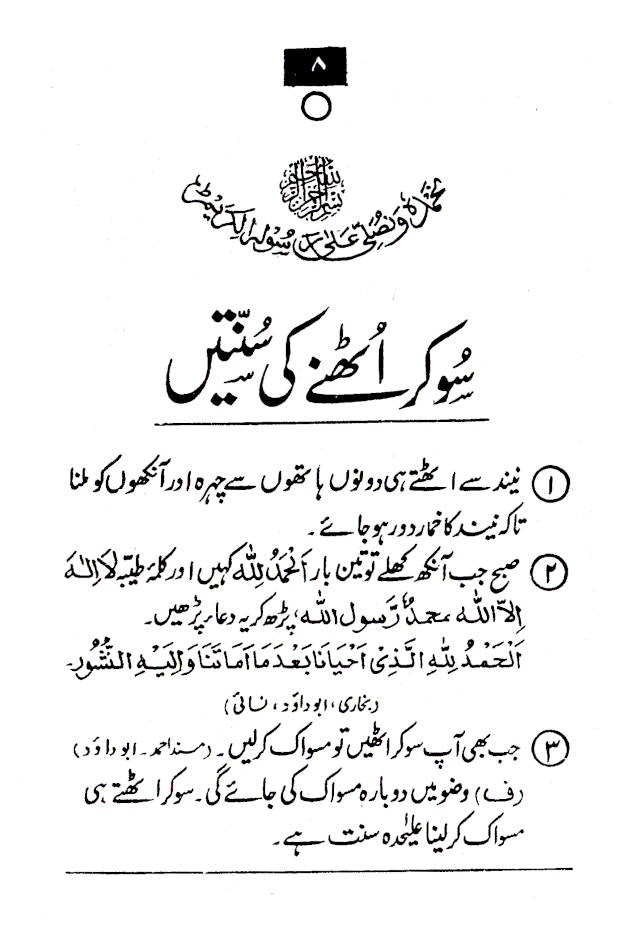 ۸
بسم الله الرحمن الرحيم
نحمده ونصلي على رسوله الكريم
سو کر اُٹھنے کی سُنّتیں
① نیند سے اٹھتے ہی دونوں ہاتھوں سے چہرہ اور آنکھوں کو ملنا
تاکہ نیند کا خمار دور ہو جائے۔
② صبح جب آنکھ کھلے تو تین بار اَلْحَمْدُ لِلّٰہ کہیں اور کلمۂ طیّبہ لَا اِلٰہَ
اِلَّا اللّٰہ محمدٌ رَّسول اللّٰہ، پڑھ کر یہ دعاء پڑھیں۔
اَلْحَمْدُ لِلّٰهِ الَّذِیْ اَحْیَانَا بَعْدَ مَا اَمَاتَنَا وَاِلَیْهِ النُّشُوْر۔
(بخاری، ابو داؤد، نسائی)
③ جب بھی آپ سو کر اٹھیں تو مسواک کر لیں۔ (مسند احمد۔ ابو داؤد)
(ف) وضو میں دوبارہ مسواک کی جائے گی۔ سو کر اٹھتے ہی
مسواک کر لینا علیٰحدہ سنت ہے۔